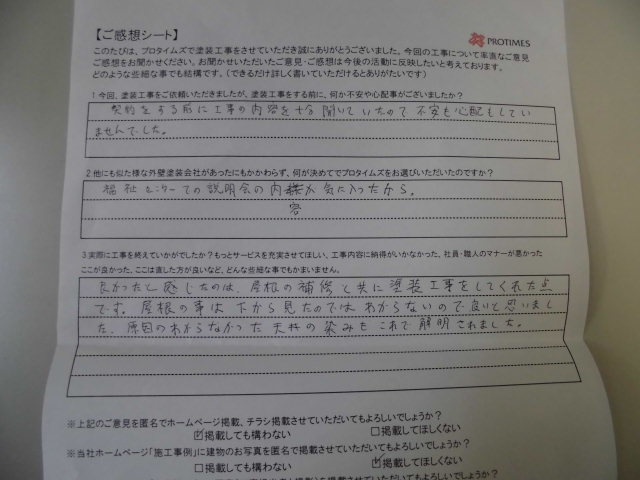 【ご感想シート】
PROTIMES
このたびは、プロタイムズで塗装工事をさせていただき誠にありがとうございました。今回の工事について率直なご意見
ご感想をお聞かせください。お聞かせいただいたご意見・ご感想は今後の活動に反映したいと考えております。
どのような些細な事でも結構です。(できるだけ詳しく書いていただけるとありがたいです)
1 今回、塗装工事をご依頼いただきましたが、塗装工事をする前に、何か不安や心配事がございましたか?
契約をする前に工事の内容を十分聞いていたので不安も心配もしてい
ませんでした。
2.他にも似た様な外壁塗装会社があったにもかかわらず、何が決めてでプロタイムズをお選びいただいたのですか?
福祉センターでの説明会の内容が気に入ったから。
3.実際に工事を終えていかがでしたか?もっとサービを充実させてほしい、工事内容に納得がいかなかった、社員・職人のマナーが悪かった
ここが良かった、ここは直した方が良いなど、どんな些細な事でもかまいません。
良かったと感じたのは、屋根の補修と共に塗装工事をしてくれた点
です。屋根の事は下から見たのではわからないので良いと思いまし
た、原因のわからなかった天井の染みもこれで解明されました。
※上記のご意見を匿名でホームページ掲載、チラシ掲載させていただいてもよろしいでしょうか?
☑掲載しても構わない □掲載してほしくない
※当社ホームページ「施工事例」に建物のお写真を匿名で掲載させていただいてもよろしいでしょうか?
□掲載しても構わない ☑掲載してほしくない